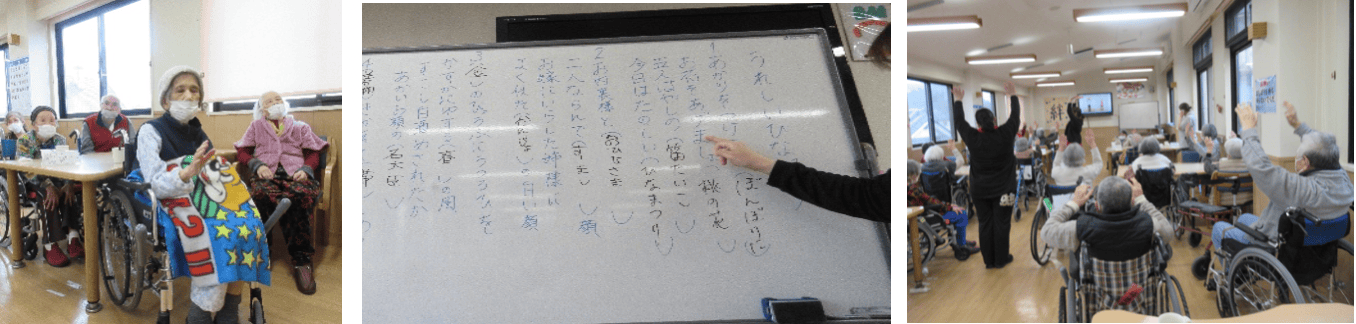 うれしいひな
1 あかりをつけ (ぼんぼりに)
お花をあげま 桃の花
五人ばやしの (笛たいこ)
今日はたのしいひなまつり
2 お内裏様と (おひなさま)
二人ならんで (すまし) 顔
お嫁にいらした姉様に
よく似た の白い顔
かすかにゆする (春) の風
すこし白酒めされたか
あかいお顔の (右大臣)
絆